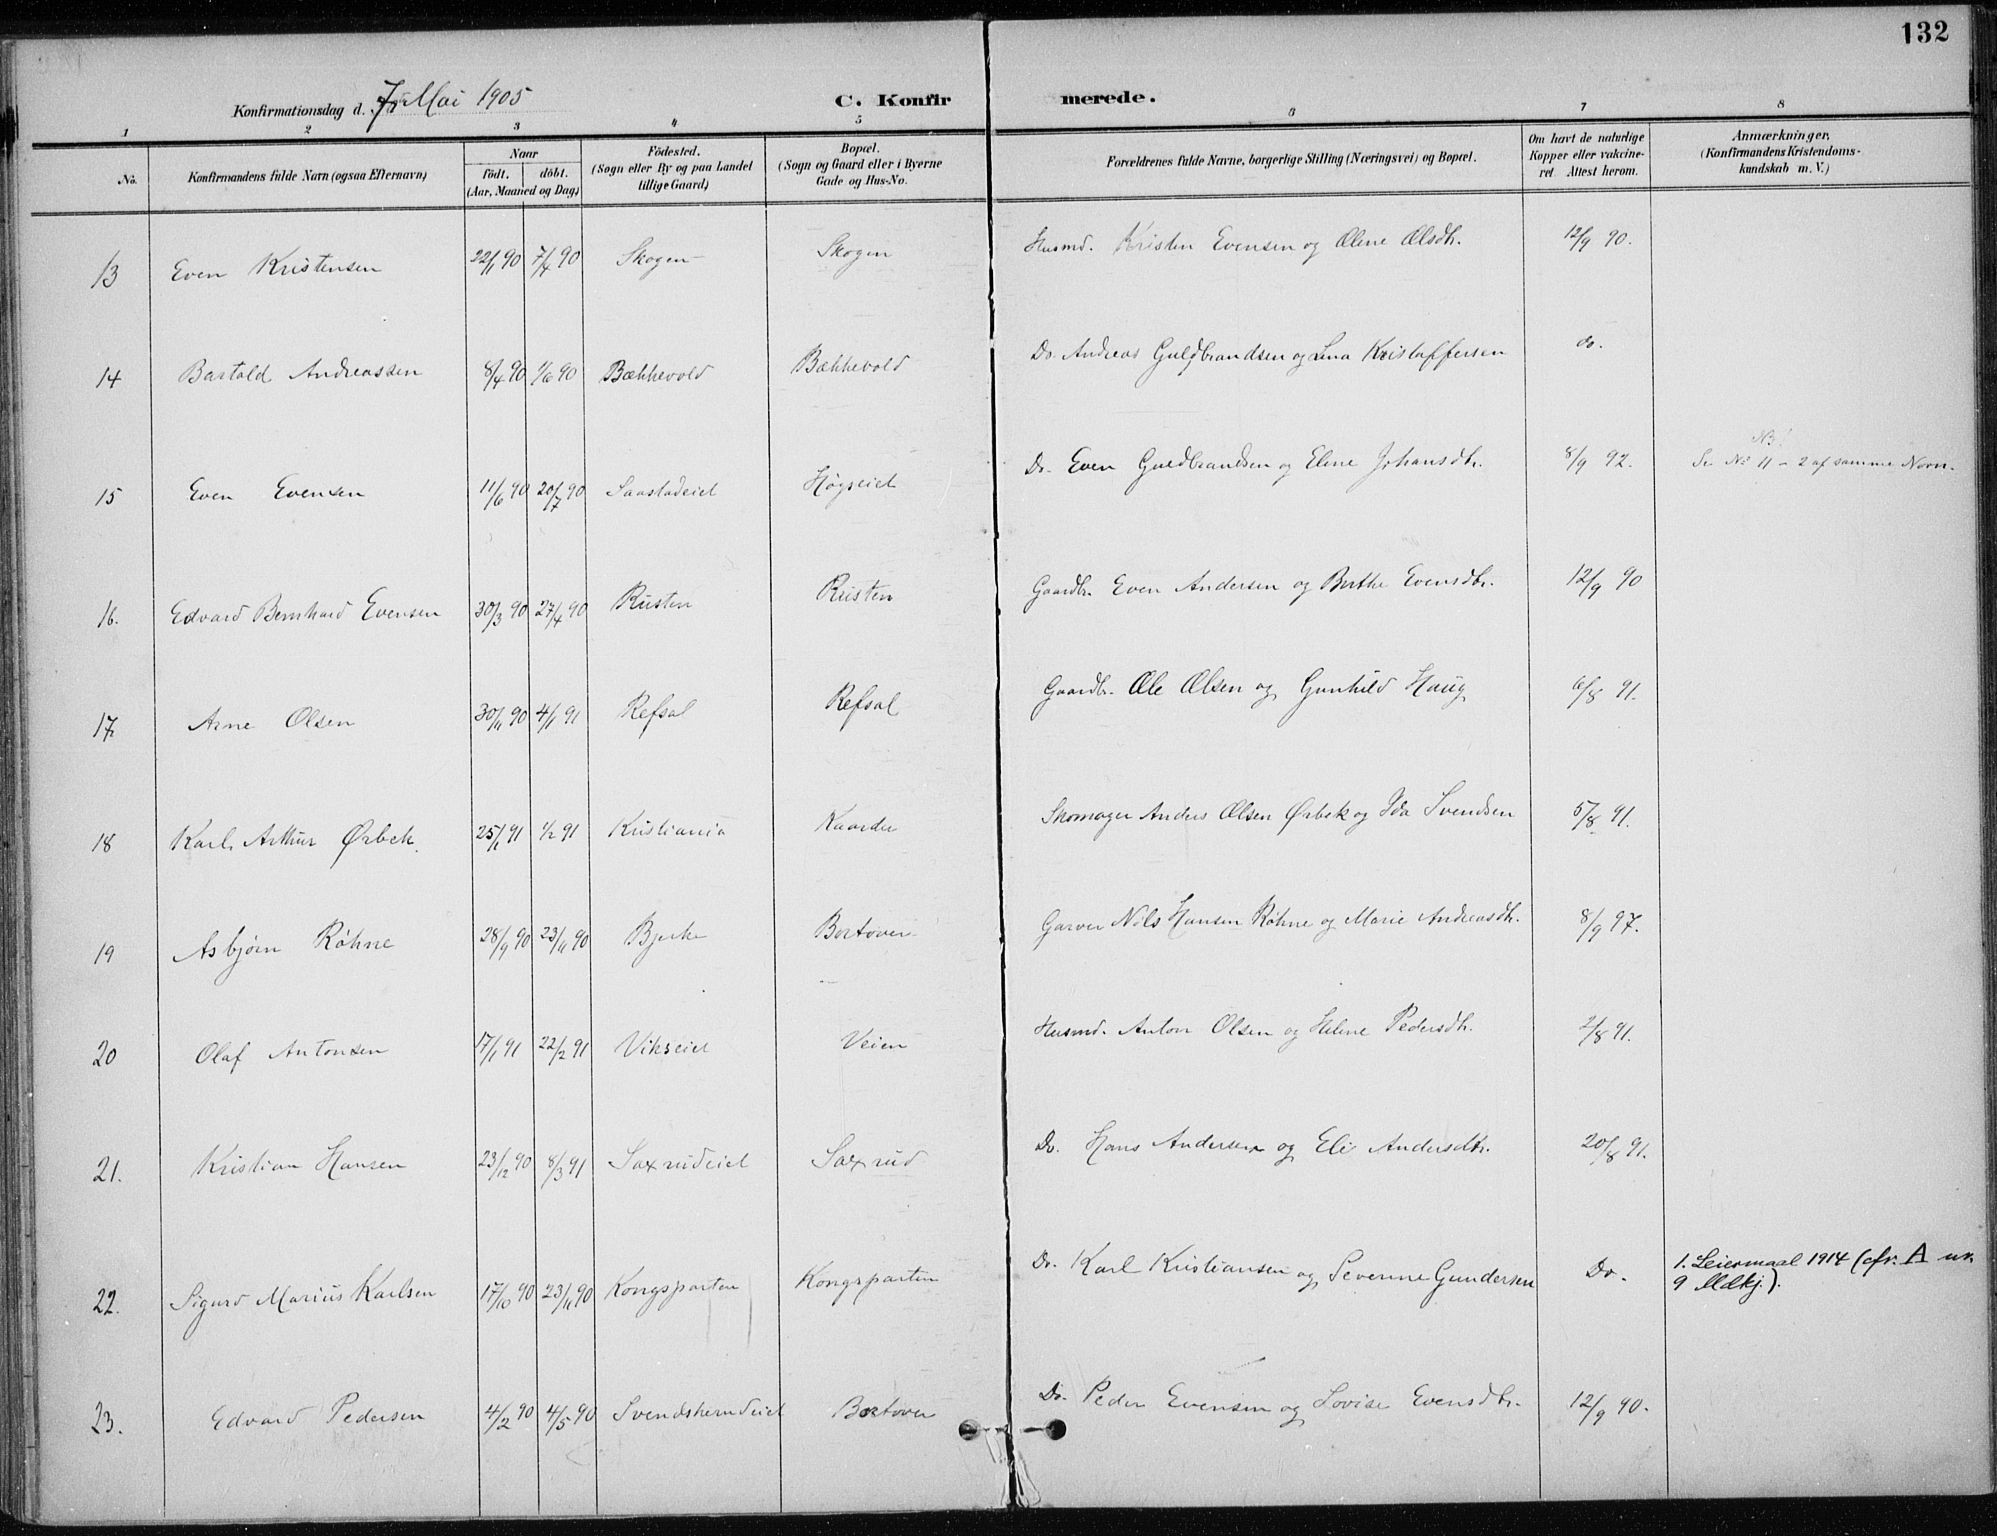 132
Konfirmationsdag d. 7de Mai 1905 C. Konfirmerede.
1 2 3 4 5 6 7 8
No. Konfirmandens fulde Navn (ogsaa Efternavn) Naar födt. döbt. (Aar, Maaned og Dag) Födested. (Sogn eller By og paa Landet tillige Gaard) Bopæl. (Sogn og Gaard eller i Byerne Gade og Hus-No. Forældrenes fulde Navne, borgerlige Stilling (Næringsvei) og Bopæl. Om havt de naturlige Kopper eller vakcineret. Attest herom. Anmærkninger. (Konfirmandens Kristendomskundskab m. V.)
13 Even Kristensen 22/1 90 7/4 90 Skogen Skogen Husmd. Kristen Evensen og Olene Olsdtr. 12/9 90.
14 Bartold Andreassen 8/4 90 1/6 90 Bækkevold Bækkevold Do. Andreas Guldbrandsen og Lina Kristoffersen do.
15 Even Evensen 11/6 90 20/7 90 Saastadeiet Høgseiet Do. Even Guldbrandsen og Eline Johansdtr. 8/9 92. NB! Se No 11 - 2 af samme Navn.
16. Edvard Bernhard Evensen 30/3 90 27/4 90 Rusten Rusten Gaardbr. Even Andersen og Berthe Evensdtr. 12/9 90
17. Arne Olsen 30/11 90 4/1 91 Refsal Refsal Gaardbr. Ole Olsen og Gunhild Haug 6/8 91.
18 Karl Arthur Ørbek 25/1 91 1/2 91 Kristiania Kaarder Skomager Anders Olsen Ørbek og Ida Svendsen 5/8 91.
19 Asbjørn Røhne 28/9 90 23/11 90 Bjerke Bortover Garver Nils Hansen Røhne og Marie Andreasdtr. 8/9 97.
20 Olaf Antonsen 17/1 91 22/2 91 Vikseiet Veien Husmd. Anton Olsen og Helene Pedersdtr. 2/8 91.
21. Kristian Hansen 23/12 90 8/3 91 Saxrudeiet Saxrud Do. Hans Andersen og Eli Andersdtr. 20/8 91.
22. Sigurd Marius Karlsen 17/10 90 23/11 90 Kongsparten Kongsparten Do. Karl Kristiansen og Severine Gundersen Do. 1. Leiermaal 1914 (cfr. A nr. 9 Mdkj.).
23. Edvard Pedersen 4/2 90 4/5 90 Svendskerudeiet Bortover Do. Peder Evensen og Lovise Evensdtr. 12/9 90.